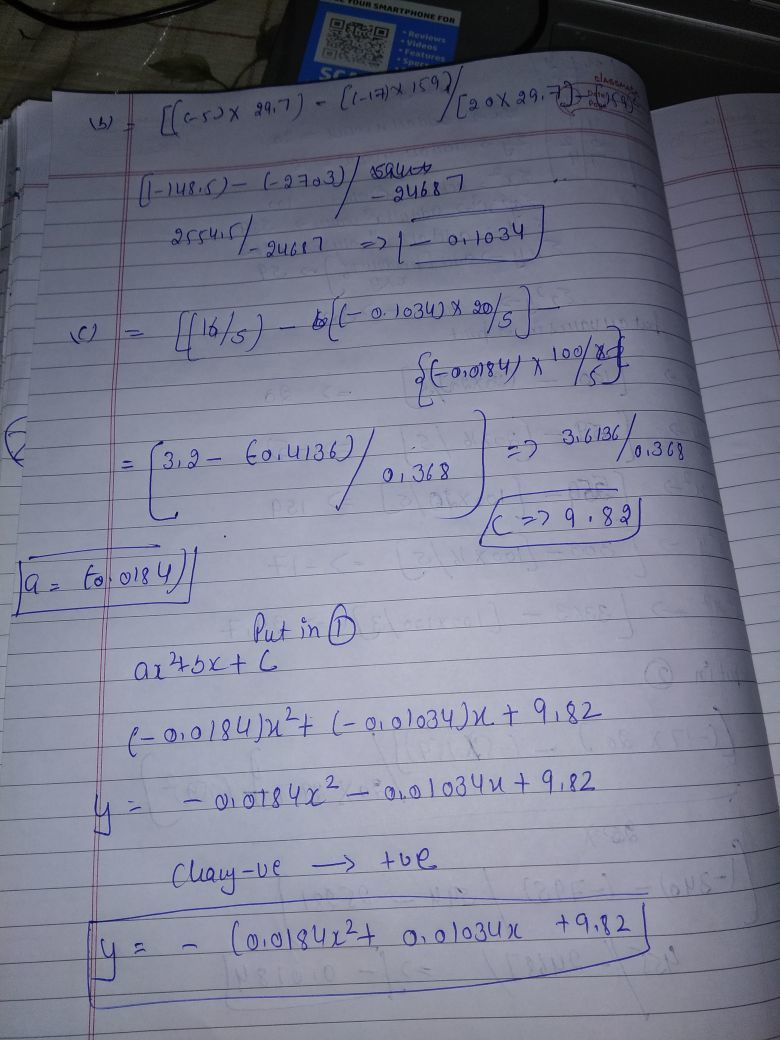 YOUR SMARTPHONE FOR
• Reviews
• Videos
• Features
SCA
classmate
Date
Page
(b) = [[(-5) x 29.7) - [(-17) x 159] / [20 x 29.7] - (159)²
[(-148.5) - (-2703) /
- 24687
2554.5 / -24687 => - 0.1034
(c) = [[16/5) - [(-0.1034) x 20/5] -
{(-0.0184) x 100/5}
= [3.2 - (-0.4136) / 0.368] => 3.6136/0.368
C => 9.82
a = (-0.0184)
Put in ①
ax²+bx + C
(-0.0184)x² + (-0.01034)x + 9.82
y = - 0.0184x² - 0.01034x + 9.82
-ve → +ve
y = - (0.0184x² + 0.01034x + 9.82